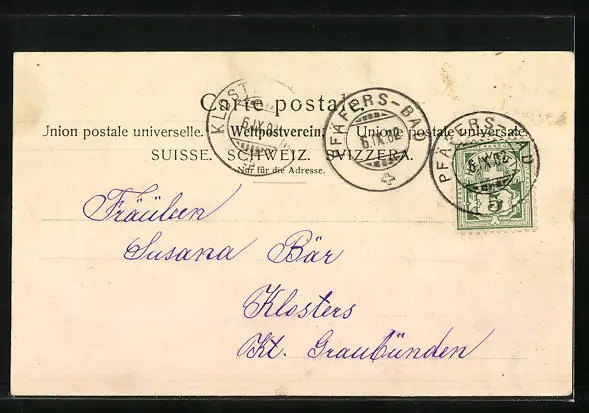 Carte postale.
Union postale universelle. Weltpostverein. Unione postale universale.
SUISSE. SCHWEIZ. SVIZZERA.
Nur für die Adresse.
KLOST
6.IX.02
PFÄFERS-BAD
6.IX.02
PFÄFERS-BAD
6.IX.02
5
Fräulein
Susana Bär
Klosters
Kt. Graubünden